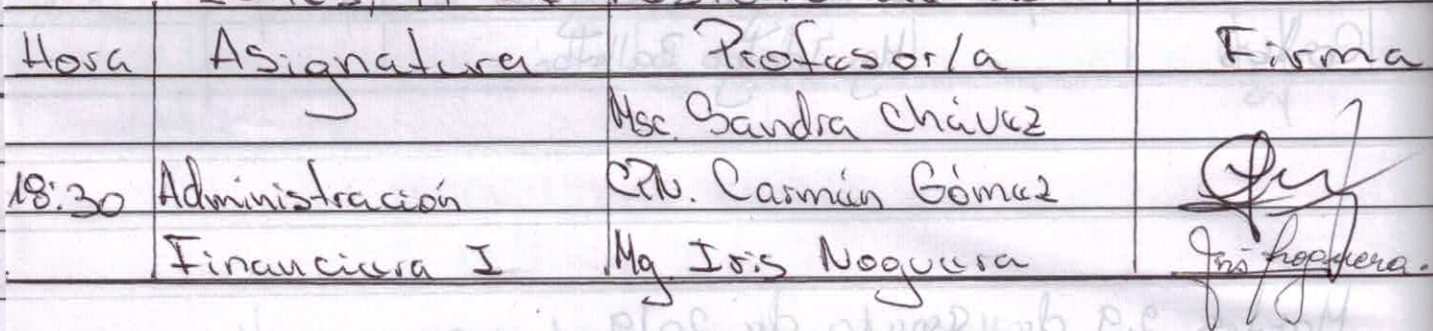 Hora Asignatura Profesor/a Firma
Msc. Sandra Chávez
18:30 Administración CPN. Carmén Gómez
Financiera I Mg Iris Noguera Iris Noguera.